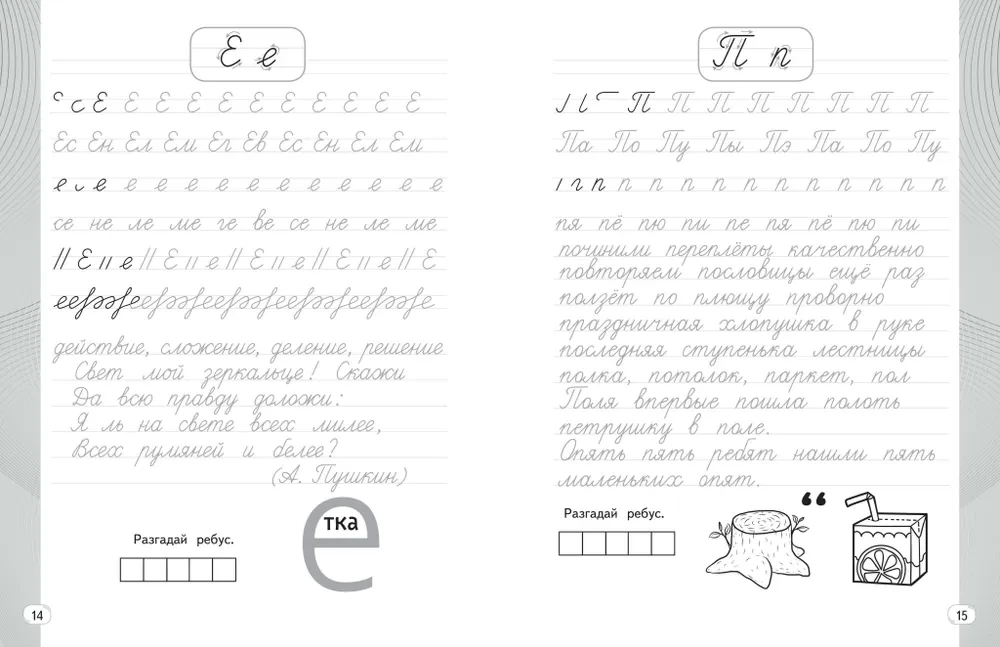 Е е
Е Е Е Е Е Е Е Е Е Е Е
Ес Ен Ел Ем Ег Ев Ес Ен Ел Ем
е е е е е е е е е е е е е
се не ле ме ге ве се не ле ме
// Е // е // Е // е // Е // е // Е // е // Е
действие, сложение, деление, решение
Свет мой зеркальце! Скажи
Да всю правду доложи:
Я ль на свете всех милее,
Всех румяней и белее?
(А. Пушкин)
Разгадай ребус.
е
тка
14
П п
П П П П П П П П
Па По Пу Пы Пэ Па По Пу
п п п п п п п п п п п п
пя пё пю пи пе пя пё пю пи
починили переплёты качественно
повторяем пословицы ещё раз
ползёт по плющу проворно
праздничная хлопушка в руке
последняя ступенька лестницы
полка, потолок, паркет, пол
Поля впервые пошла полоть
петрушку в поле.
Опять пять ребят нашли пять
маленьких опят.
Разгадай ребус.
“
15